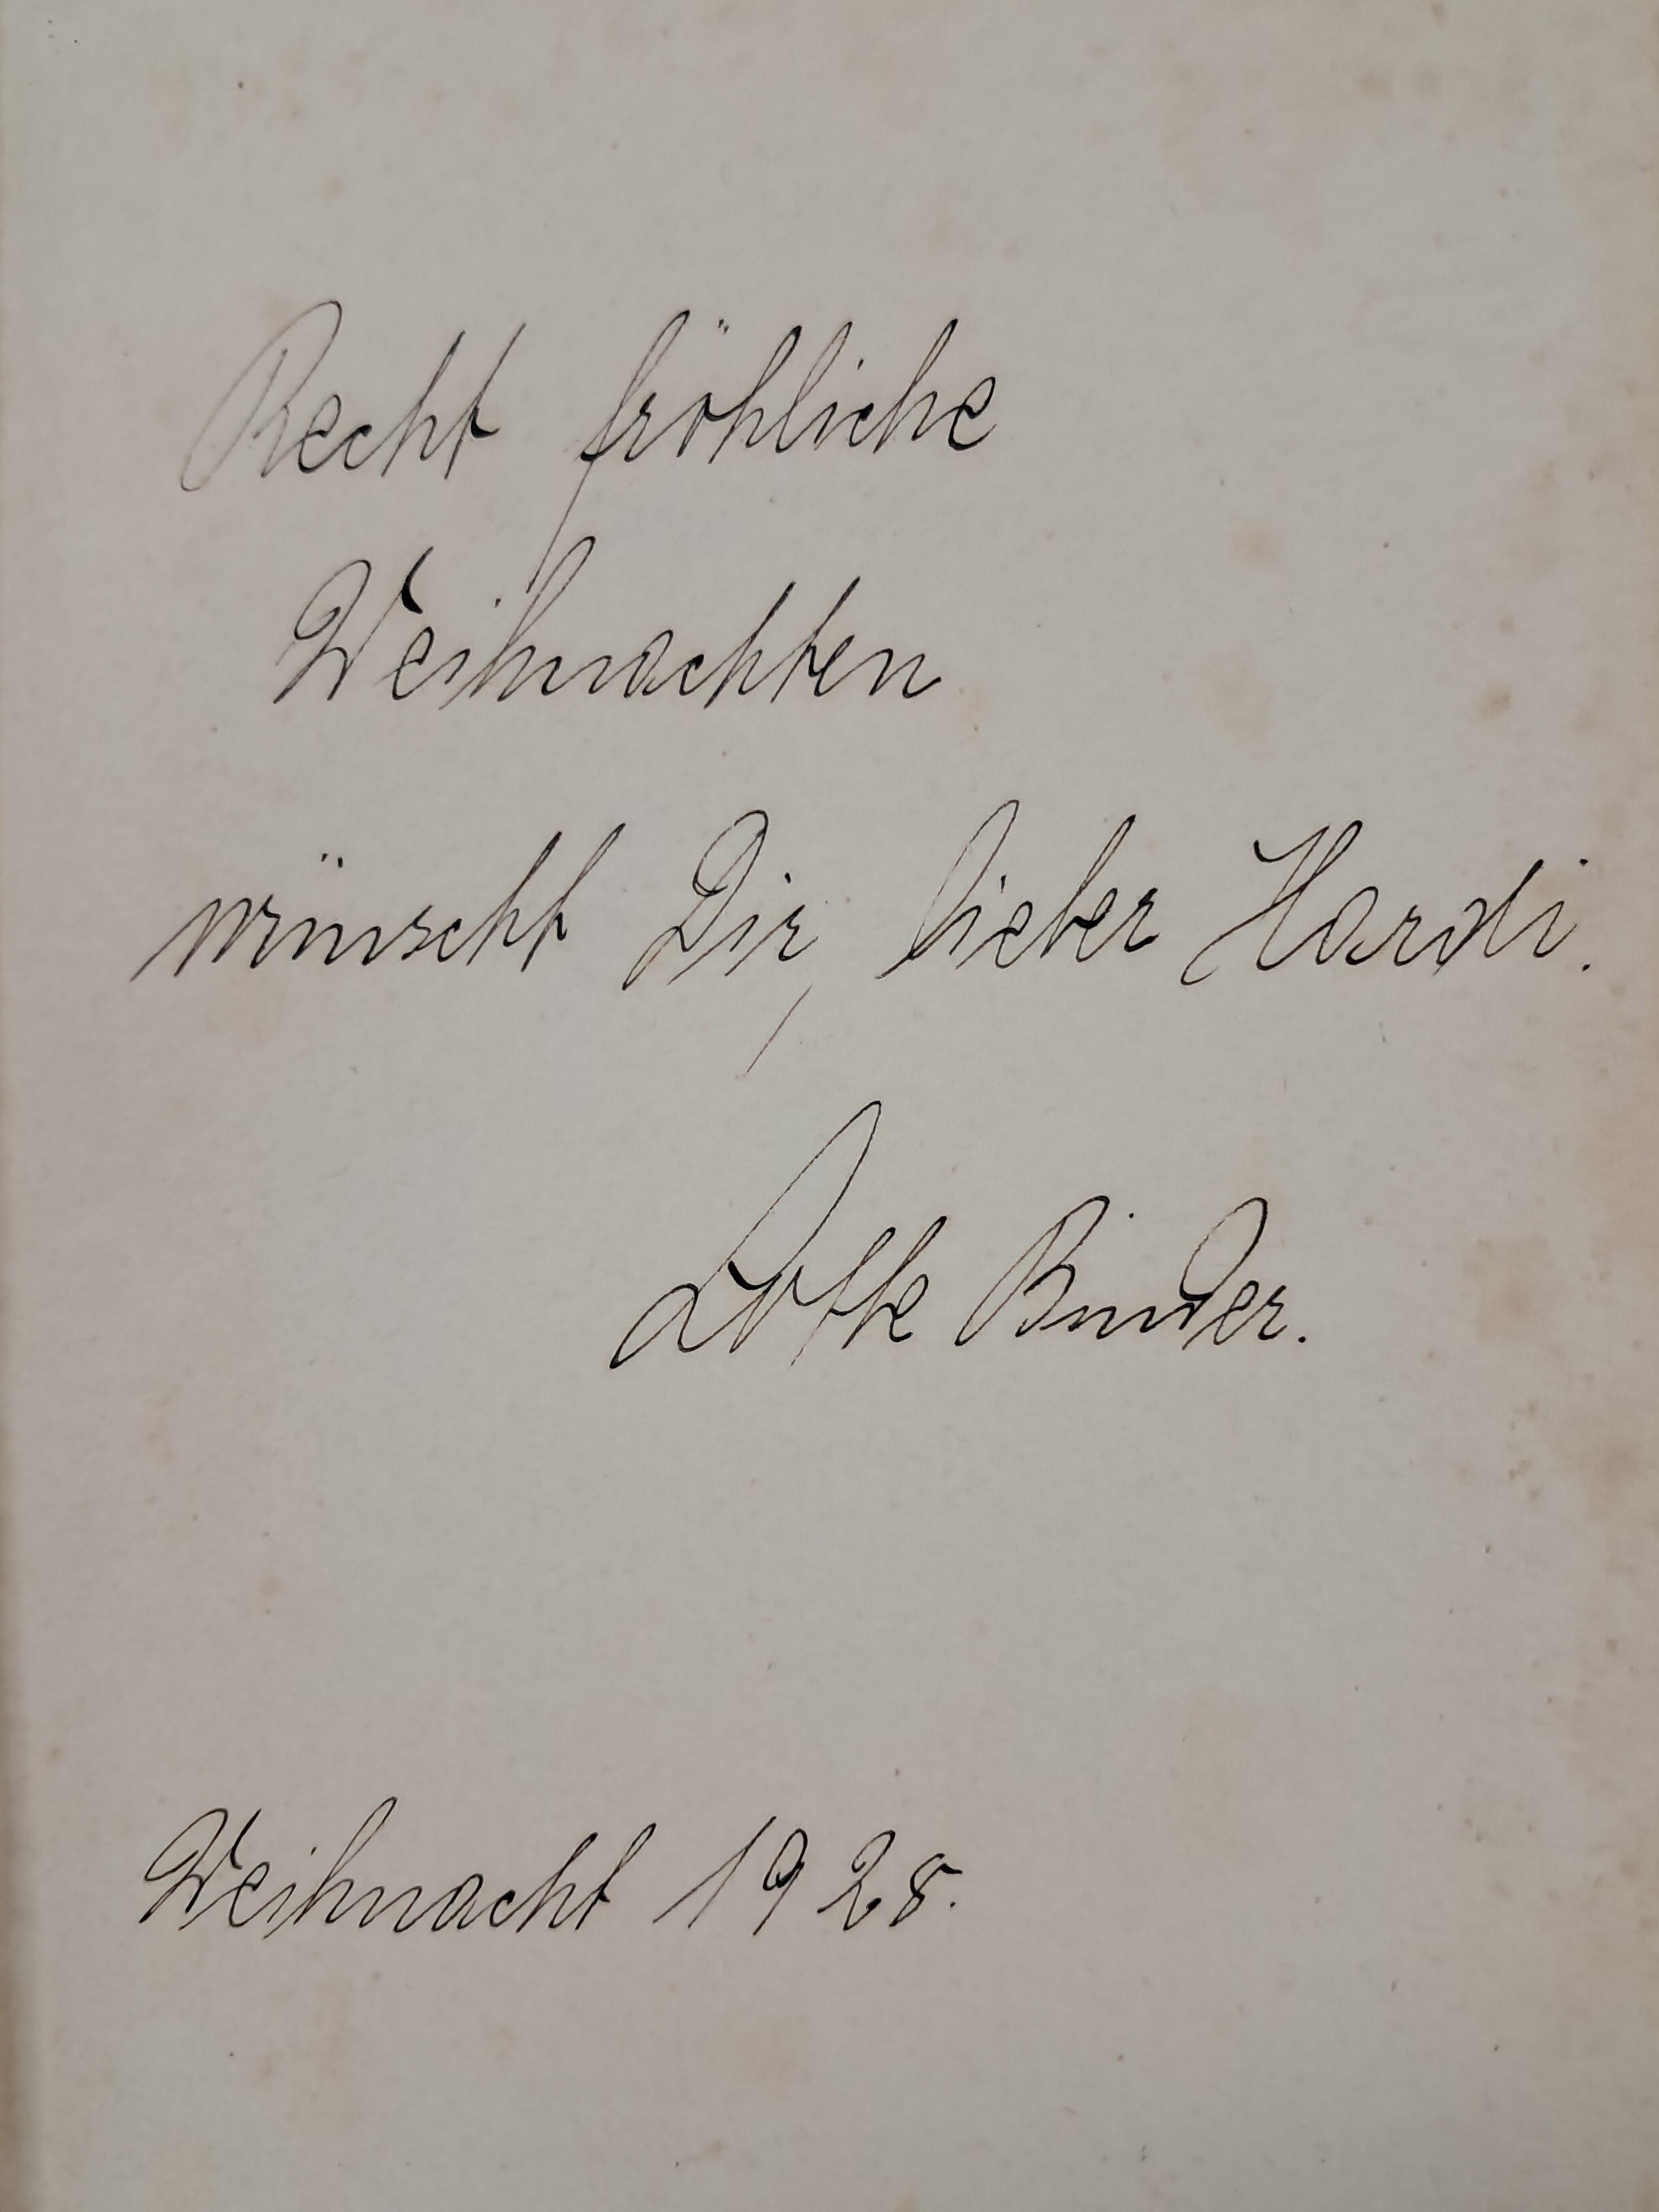 Recht fröhliche
Weihnachten
wünscht Dir, lieber Hardi.
Lotte Binder.
Weihnacht 1928.